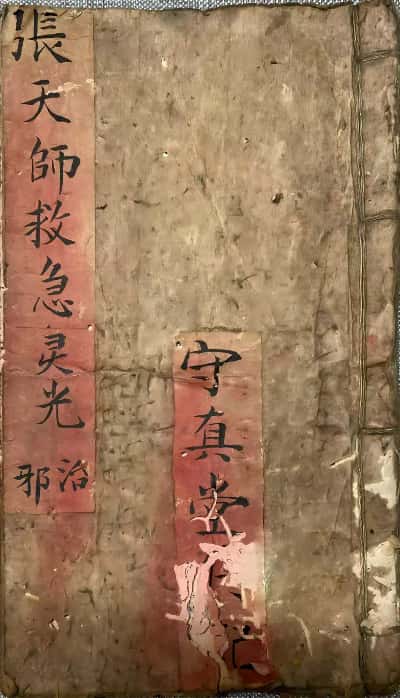 張天師救急灵光
治邪
守真堂